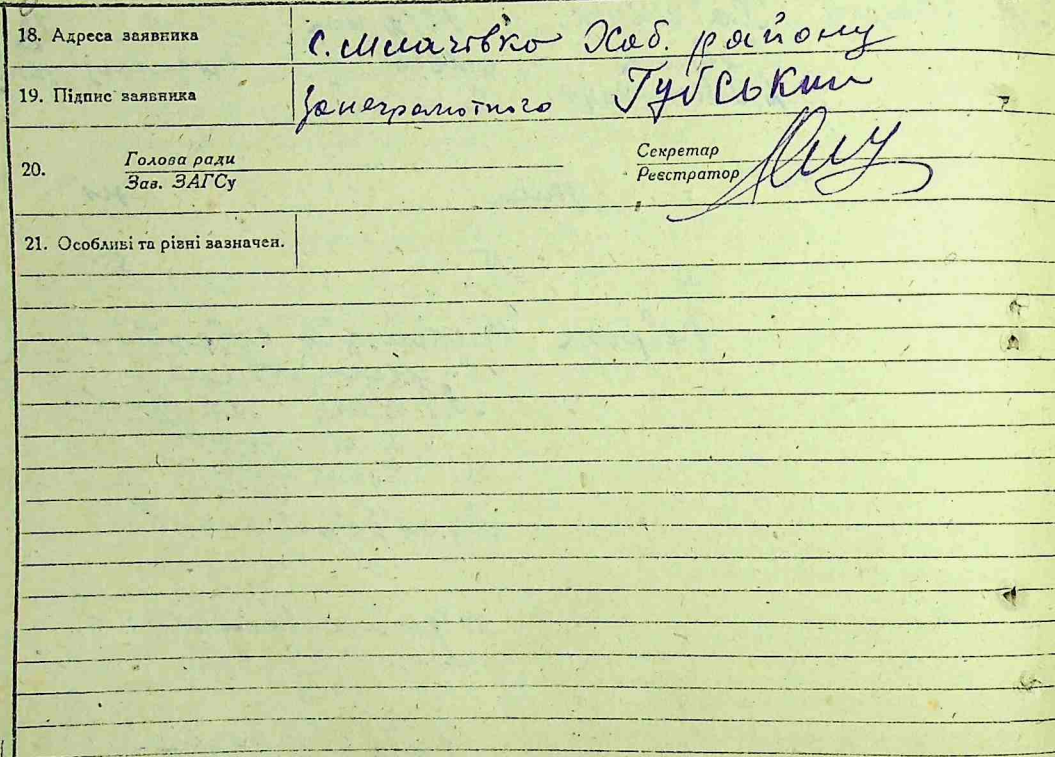 18. Адреса заявника с. Млачівка Хаб. району
19. Підпис заявника Занеграмотного Губський
20. Голова ради Секретар
Зав. ЗАГСу Реєстратор
21. Особливі та різні зазначен.